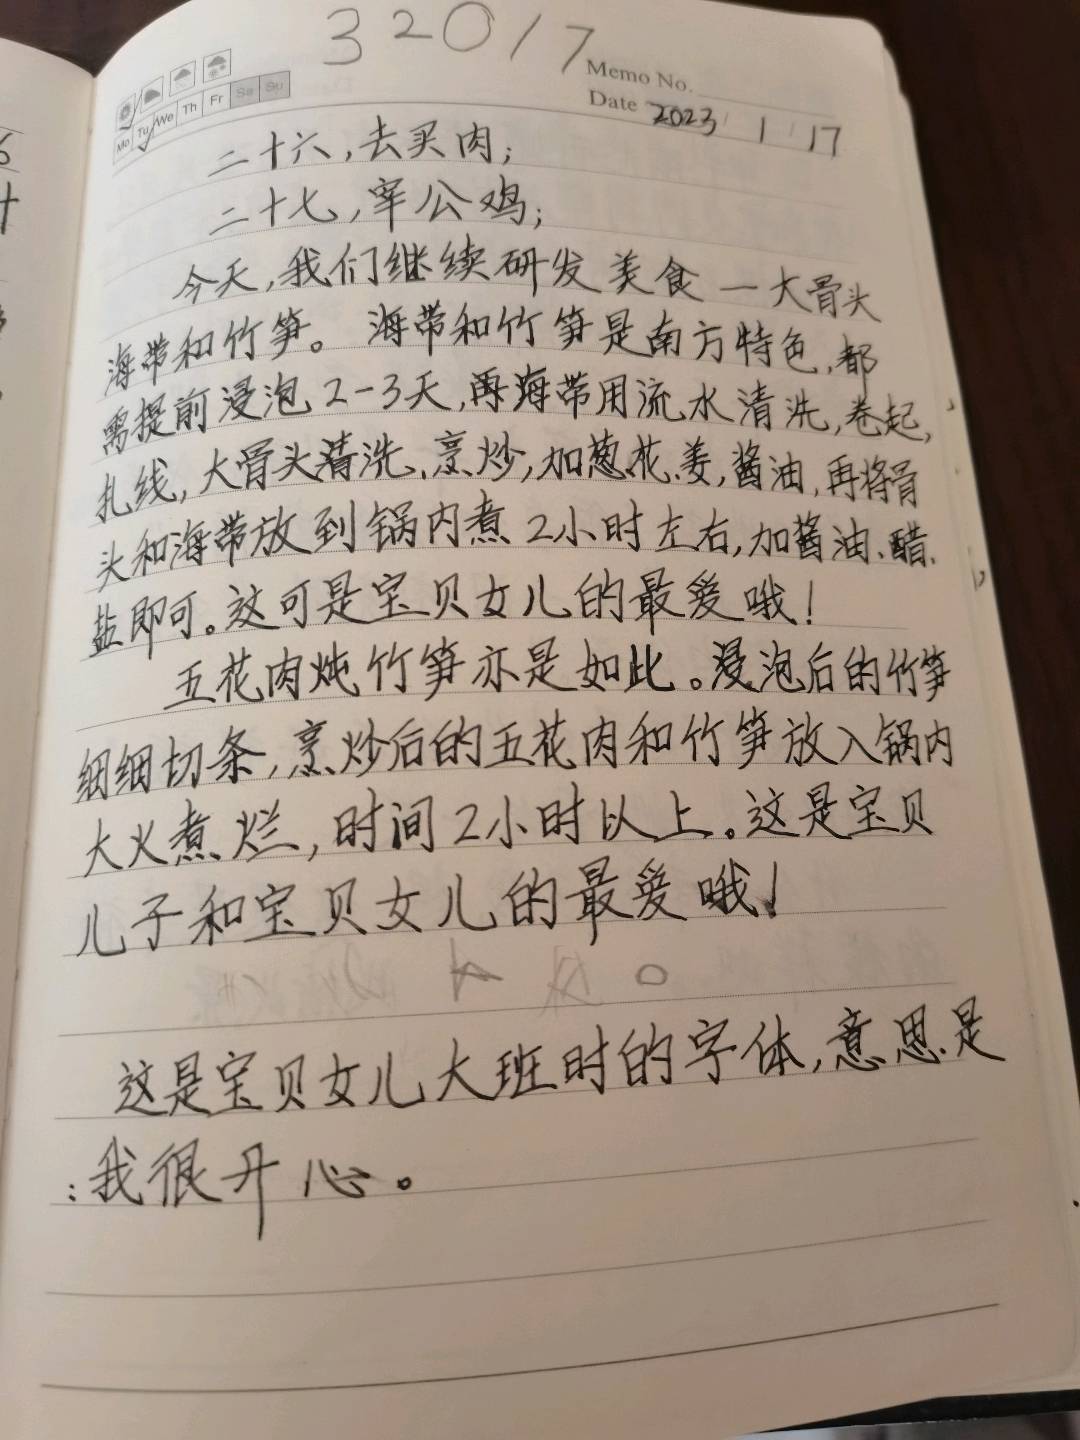 3 2 0 1 7
Memo No.
Mo Tu We Th Fr Sa Su
Date 2023 / 1 / 17
二十六，去买肉；
二十七，宰公鸡；
今天，我们继续研发美食一大骨头
海带和竹笋。海带和竹笋是南方特色，都
需提前浸泡2-3天，再海带用流水清洗，卷起，
扎线，大骨头清洗、烹炒，加葱花、姜，酱油，再将骨
头和海带放到锅内煮2小时左右，加酱油、醋、
盐即可。这可是宝贝女儿的最爱哦！
五花肉炖竹笋亦是如此。浸泡后的竹笋
细细切条，烹炒后的五花肉和竹笋放入锅内
大火煮烂，时间2小时以上。这是宝贝
儿子和宝贝女儿的最爱哦！
这是宝贝女儿大班时的字体，意思是
：我很开心。